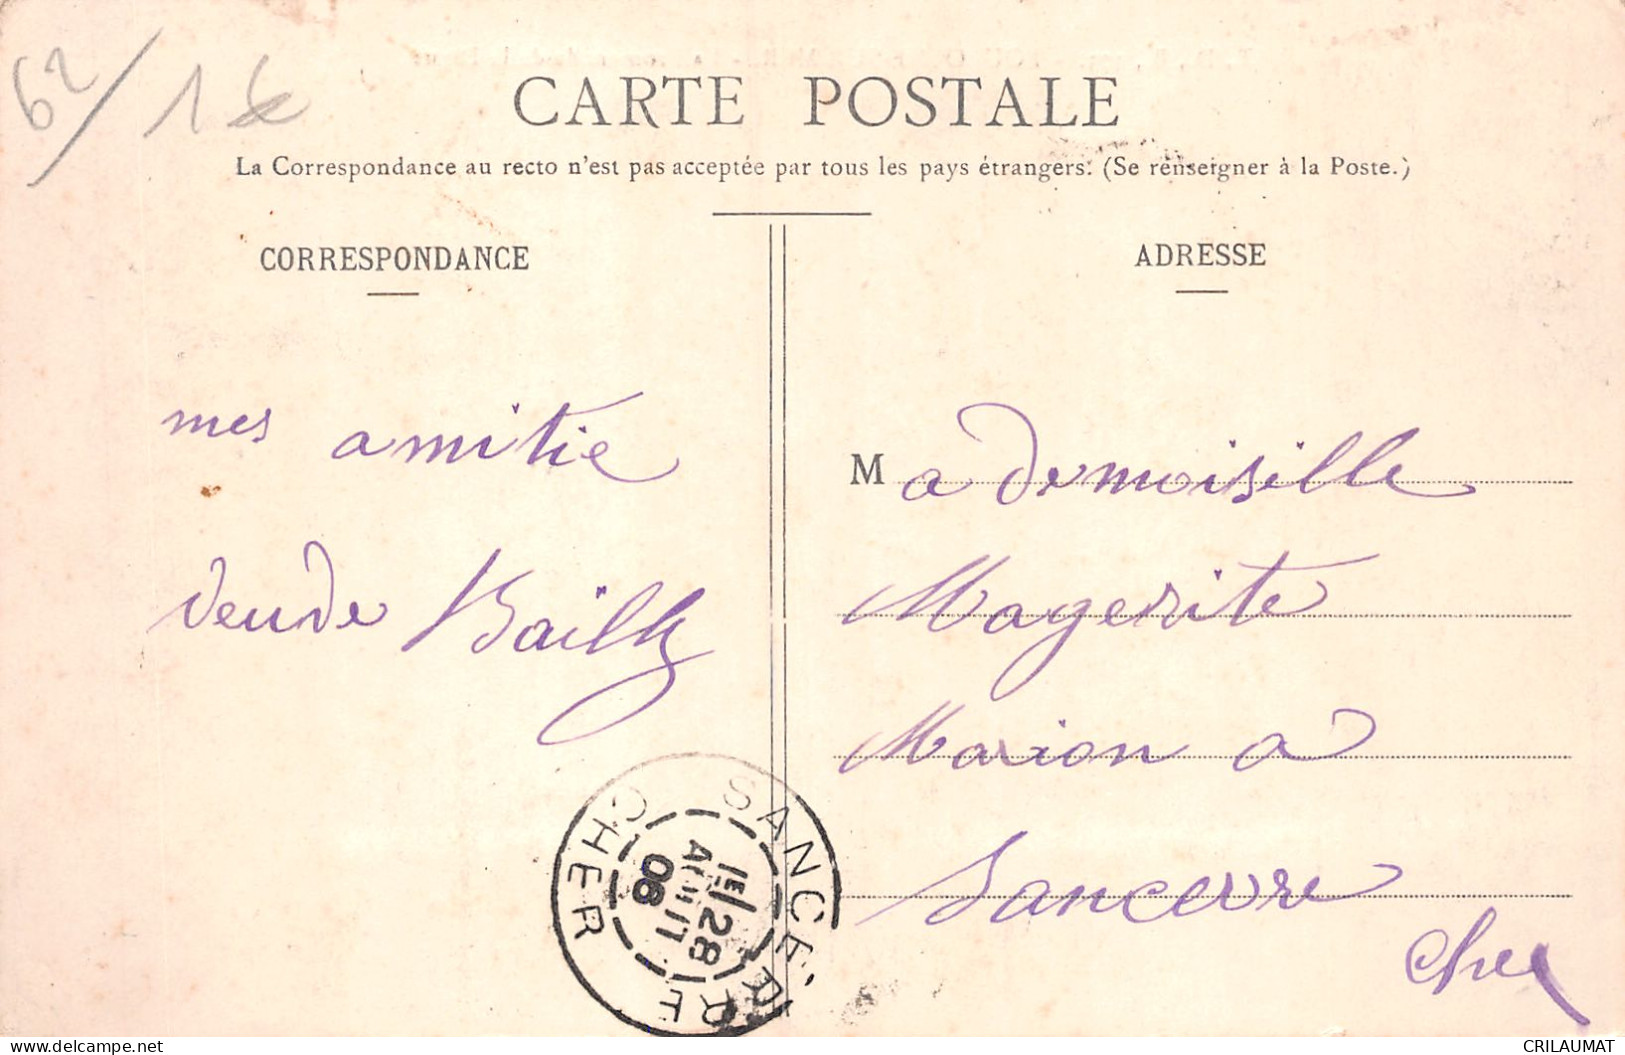 62/ 1€
CARTE POSTALE
La Correspondance au recto n'est pas acceptée par tous les pays étrangers: (Se renseigner à la Poste.)
CORRESPONDANCE
mes amitie
veuve Bailly
ADRESSE
Mademoiselle
Magerite
Marion a
Sancerre
Cher
SANCERRE
1E/28
AOUT
08
CHER
CRILAUMAT